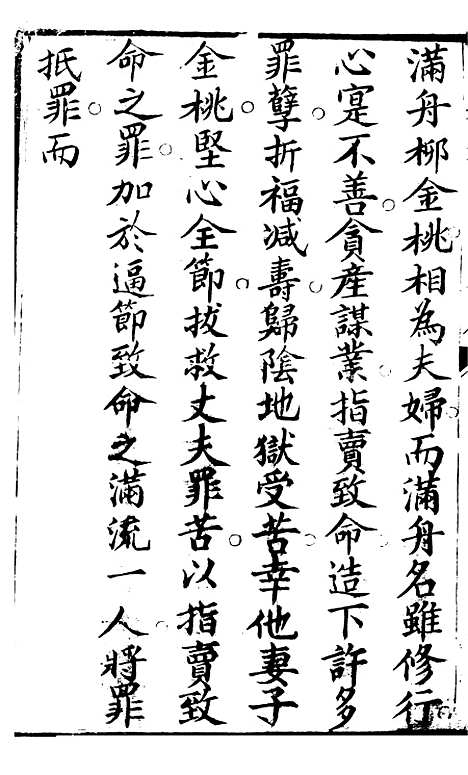 滿舟柳金桃相為夫婦而滿舟名雖修行
心寔不善貪產謀業指賣致命造下許多
罪孽折福減壽歸陰地獄受苦幸他妻子
金桃堅心全節拔救丈夫罪苦以指賣致
命之罪加於逼節致命之滿流一人將罪
抵罪而